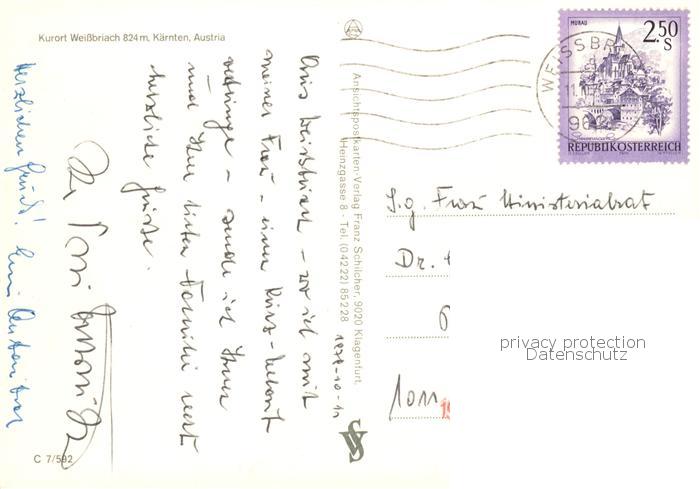 Kurort Weißbriach 824 m, Kärnten, Austria
Aus Weißbriach - wo ich mit
meiner Frau - einen Kurz-Urlaub
verbringe - sende ich Ihnen
und Ihrer lieben Familie recht
herzliche Grüße.
Ihr
Herzlichen Gruß!
C 7/592
Ansichtspostkarten-Verlag Franz Schilcher, 9020 Klagenfurt,
Heinzgasse 8 - Tel. (0 42 22) 85 2 28
1978-10-11
MURAU
2.50
S
REPUBLIK ÖSTERREICH
WEISSBR
S.g. Frau Ministerialrat
Dr.
6
1011
privacy protection
Datenschutz